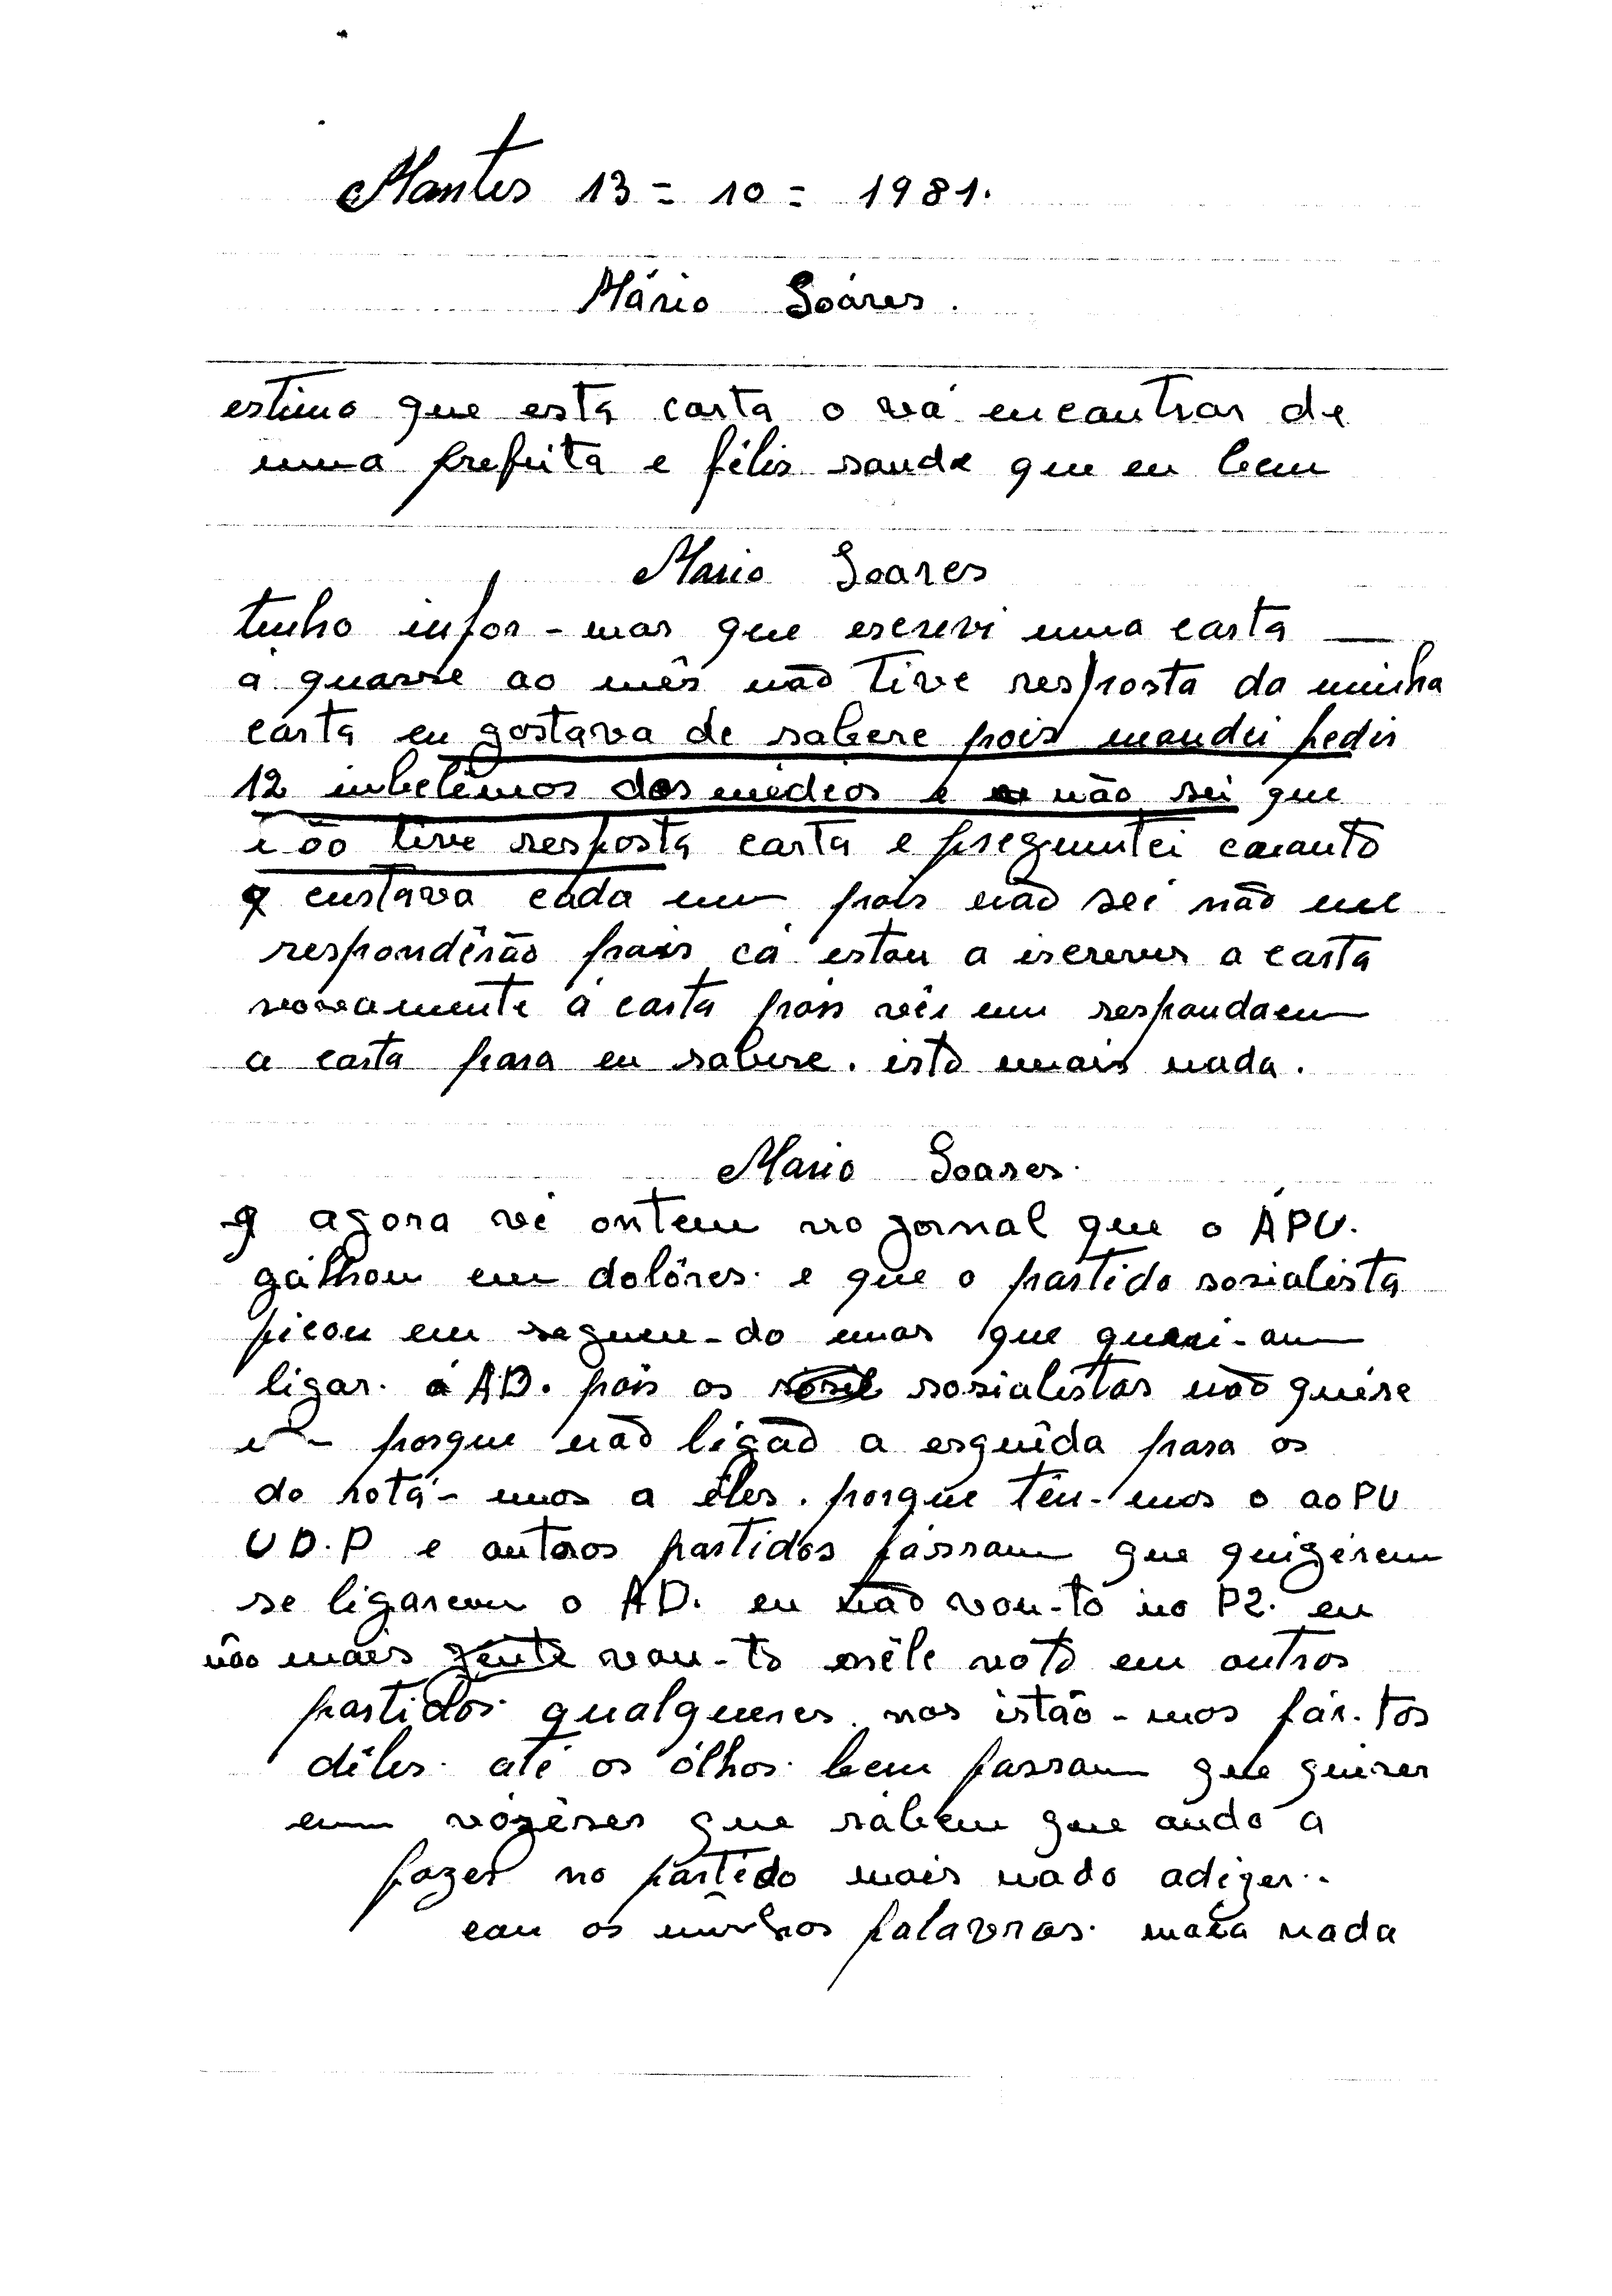 Mantes 13 = 10 = 1981.
Mário Soáres.
estimo que esta carta o vá encontrar de
uma prefeita e félis saude que eu bem
Mario Soares
tenho infor-mar que escrevi uma carta —
á quasse ao mês não tive resposta da minha
cárta eu gostava de sabere pois mandei pedir
12 imbelêmos dos médios e não sei que
não tive resposta carta e preguntei cuanto
custava cáda um pois não sei não me
respondêrão pois cá estou a iscrever a carta
novamente á carta pois vêi em respondaem
a carta para eu sabere. isto mais nada.
Mario Soares.
agora vi ontem no jornal que o ÁPU.
gálhou em dolôres. e que o partido sosialista
picou em seguen-do mas que queri-am
ligar. á AD. pois os sosialistas não quére
em porque não ligão a esquêida para os
do rotá-mos a êles. porque têm-mos o ao PU
UD.P e outros partidos fássam que quigérem
se ligarem o AD. eu não vou-to no PS. eu
não mais vou-to nêle voto em outros
partidos qualqueres. nos istão-mos fár-tos
dêles. até os ólhos. bem fassam que quiser
em vózêses que sábem que ando a
fazer no partido mais nada adizer..
com os minhos palavras. maia nada